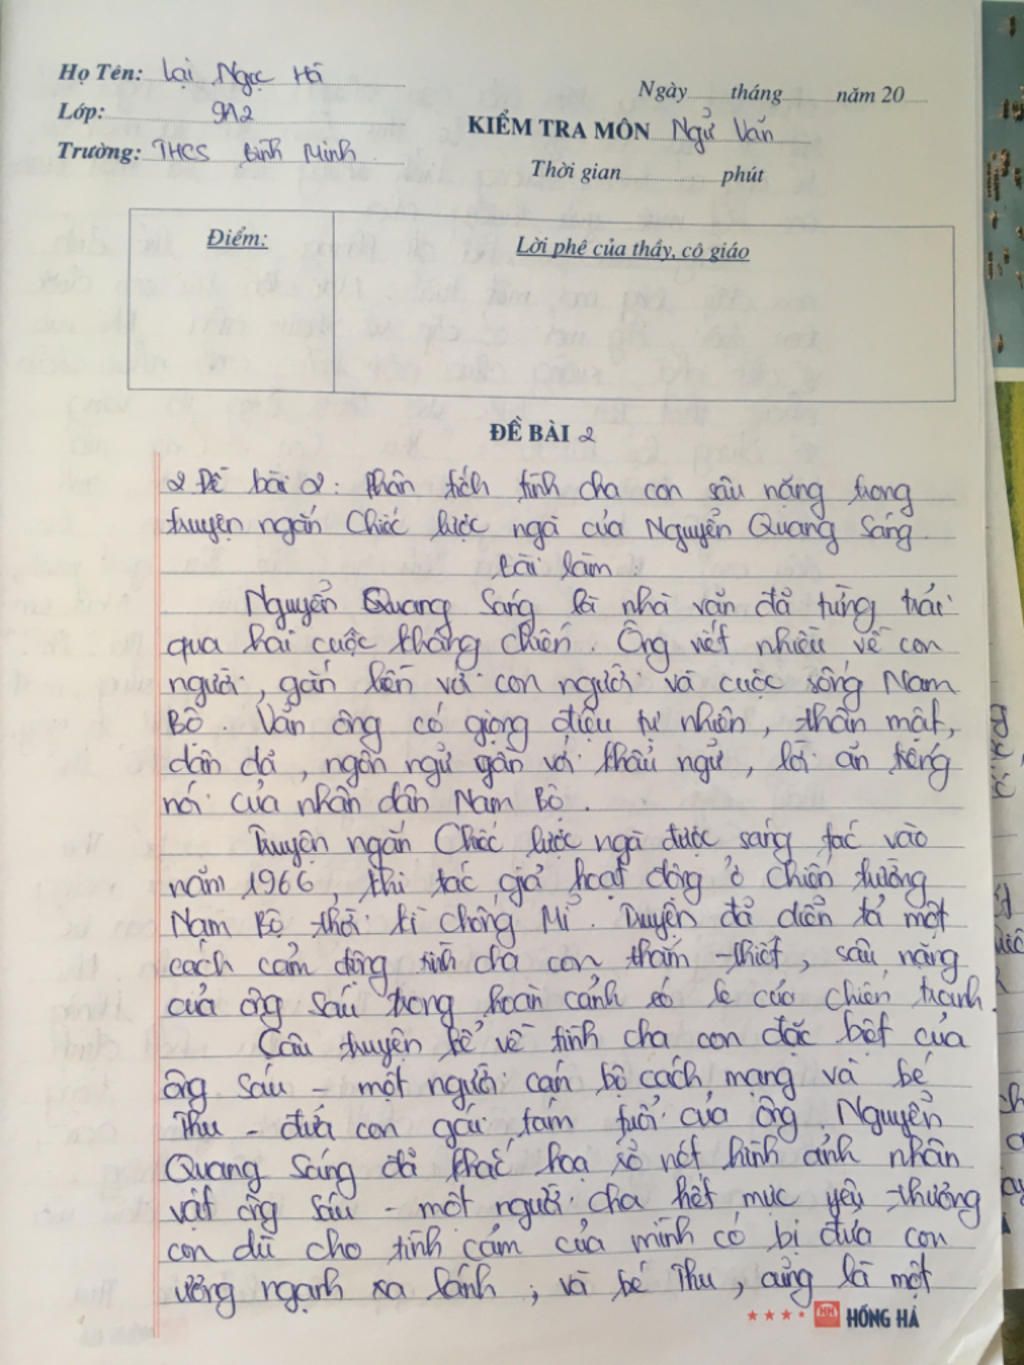 Họ Tên: Lại Ngọc Hà
Ngày tháng năm 20
Lớp: 9A2
KIỂM TRA MÔN Ngữ Văn
Trường: THCS Bình Minh
Thời gian phút
Điểm:
Lời phê của thầy, cô giáo
ĐỀ BÀI 2
2 Đề bài 2: Phân tích tình cha con sâu nặng trong
truyện ngắn Chiếc lược ngà của Nguyễn Quang Sáng.
Bài làm.
Nguyễn Quang Sáng là nhà văn đã từng trải
qua hai cuộc kháng chiến. Ông viết nhiều về con
người, gắn liền với con người và cuộc sống Nam
Bộ. Văn ông có giọng điệu tự nhiên, thân mật,
dân dã, ngôn ngữ gần với khẩu ngữ, lời ăn tiếng
nói của nhân dân Nam Bộ.
Truyện ngắn Chiếc lược ngà được sáng tác vào
năm 1966, khi tác giả hoạt động ở chiến trường
Nam Bộ thời kì chống Mĩ. Truyện đã diễn tả một
cách cảm động tình cha con thắm thiết, sâu nặng
của ông Sáu trong hoàn cảnh éo le của chiến tranh.
Câu truyện kể về tình cha con đặc biệt của
ông Sáu - một người cán bộ cách mạng và bé
Thu - đứa con gái tám tuổi của ông. Nguyễn
Quang Sáng đã khắc hoạ rõ nét hình ảnh nhân
vật ông Sáu - một người cha hết mực yêu thương
con dù cho tình cảm của mình có bị đứa con
ương ngạnh xa lánh; và bé Thu, cũng là một
HỒNG HÀ